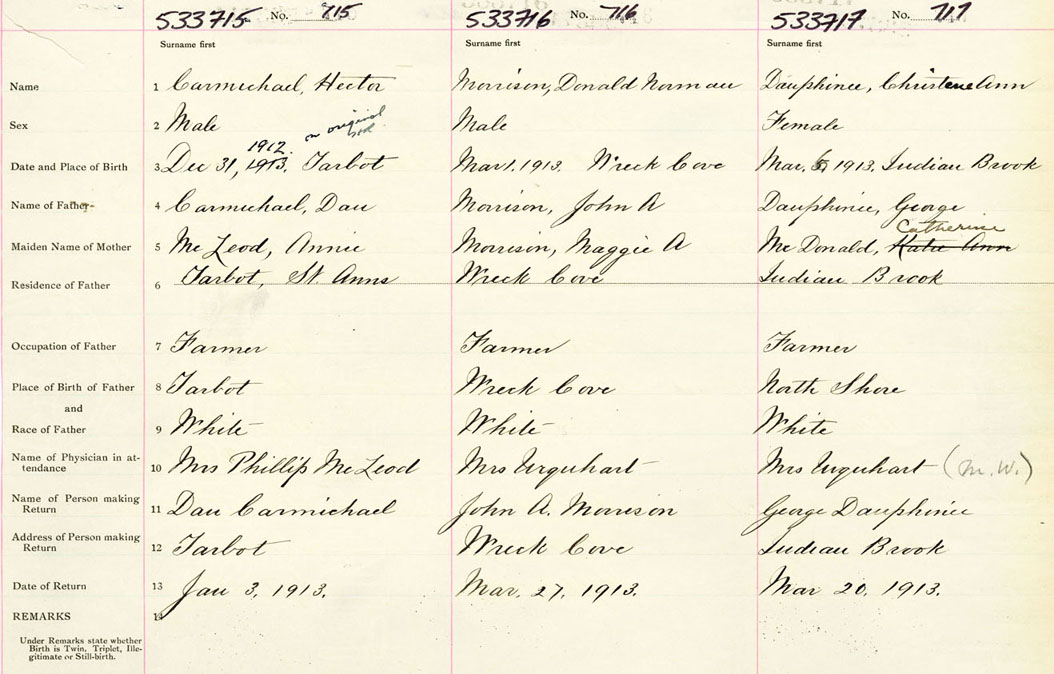 533715 No. 715 533716 No. 716 533717 No. 717
Surname first Surname first Surname first
Name 1 Carmichael, Hector Morrison, Donald Norman Dauphinee, Christene Ann
Sex 2 Male on original Male Female
1912.
Date and Place of Birth 3 Dec 31, 1913. Tarbot Mar 1. 1913. Wreck Cove Mar. 6 1913. Indian Brook
Name of Father 4 Carmichael, Dan Morrison, John A Dauphinee, George
Catherine
Maiden Name of Mother 5 Mc Leod, Annie Morrison, Maggie A Mc Donald, Katie Ann
Residence of Father 6 Tarbot, St. Anns Wreck Cove Indian Brook
Occupation of Father 7 Farmer Farmer Farmer
Place of Birth of Father 8 Tarbot Wreck Cove North Shore
and
Race of Father 9 White White White
Name of Physician in at-
tendance 10 Mrs Phillip Mc Leod Mrs Urquhart Mrs Urquhart (M.W.)
Name of Person making
Return 11 Dan Carmichael John A. Morrison George Dauphinee
Address of Person making
Return 12 Tarbot Wreck Cove Indian Brook
Date of Return 13 Jan 3, 1913. Mar. 27, 1913. Mar 20, 1913.
REMARKS 14
Under Remarks state whether
Birth is Twin, Triplet, Ille-
gitimate or Still-birth.